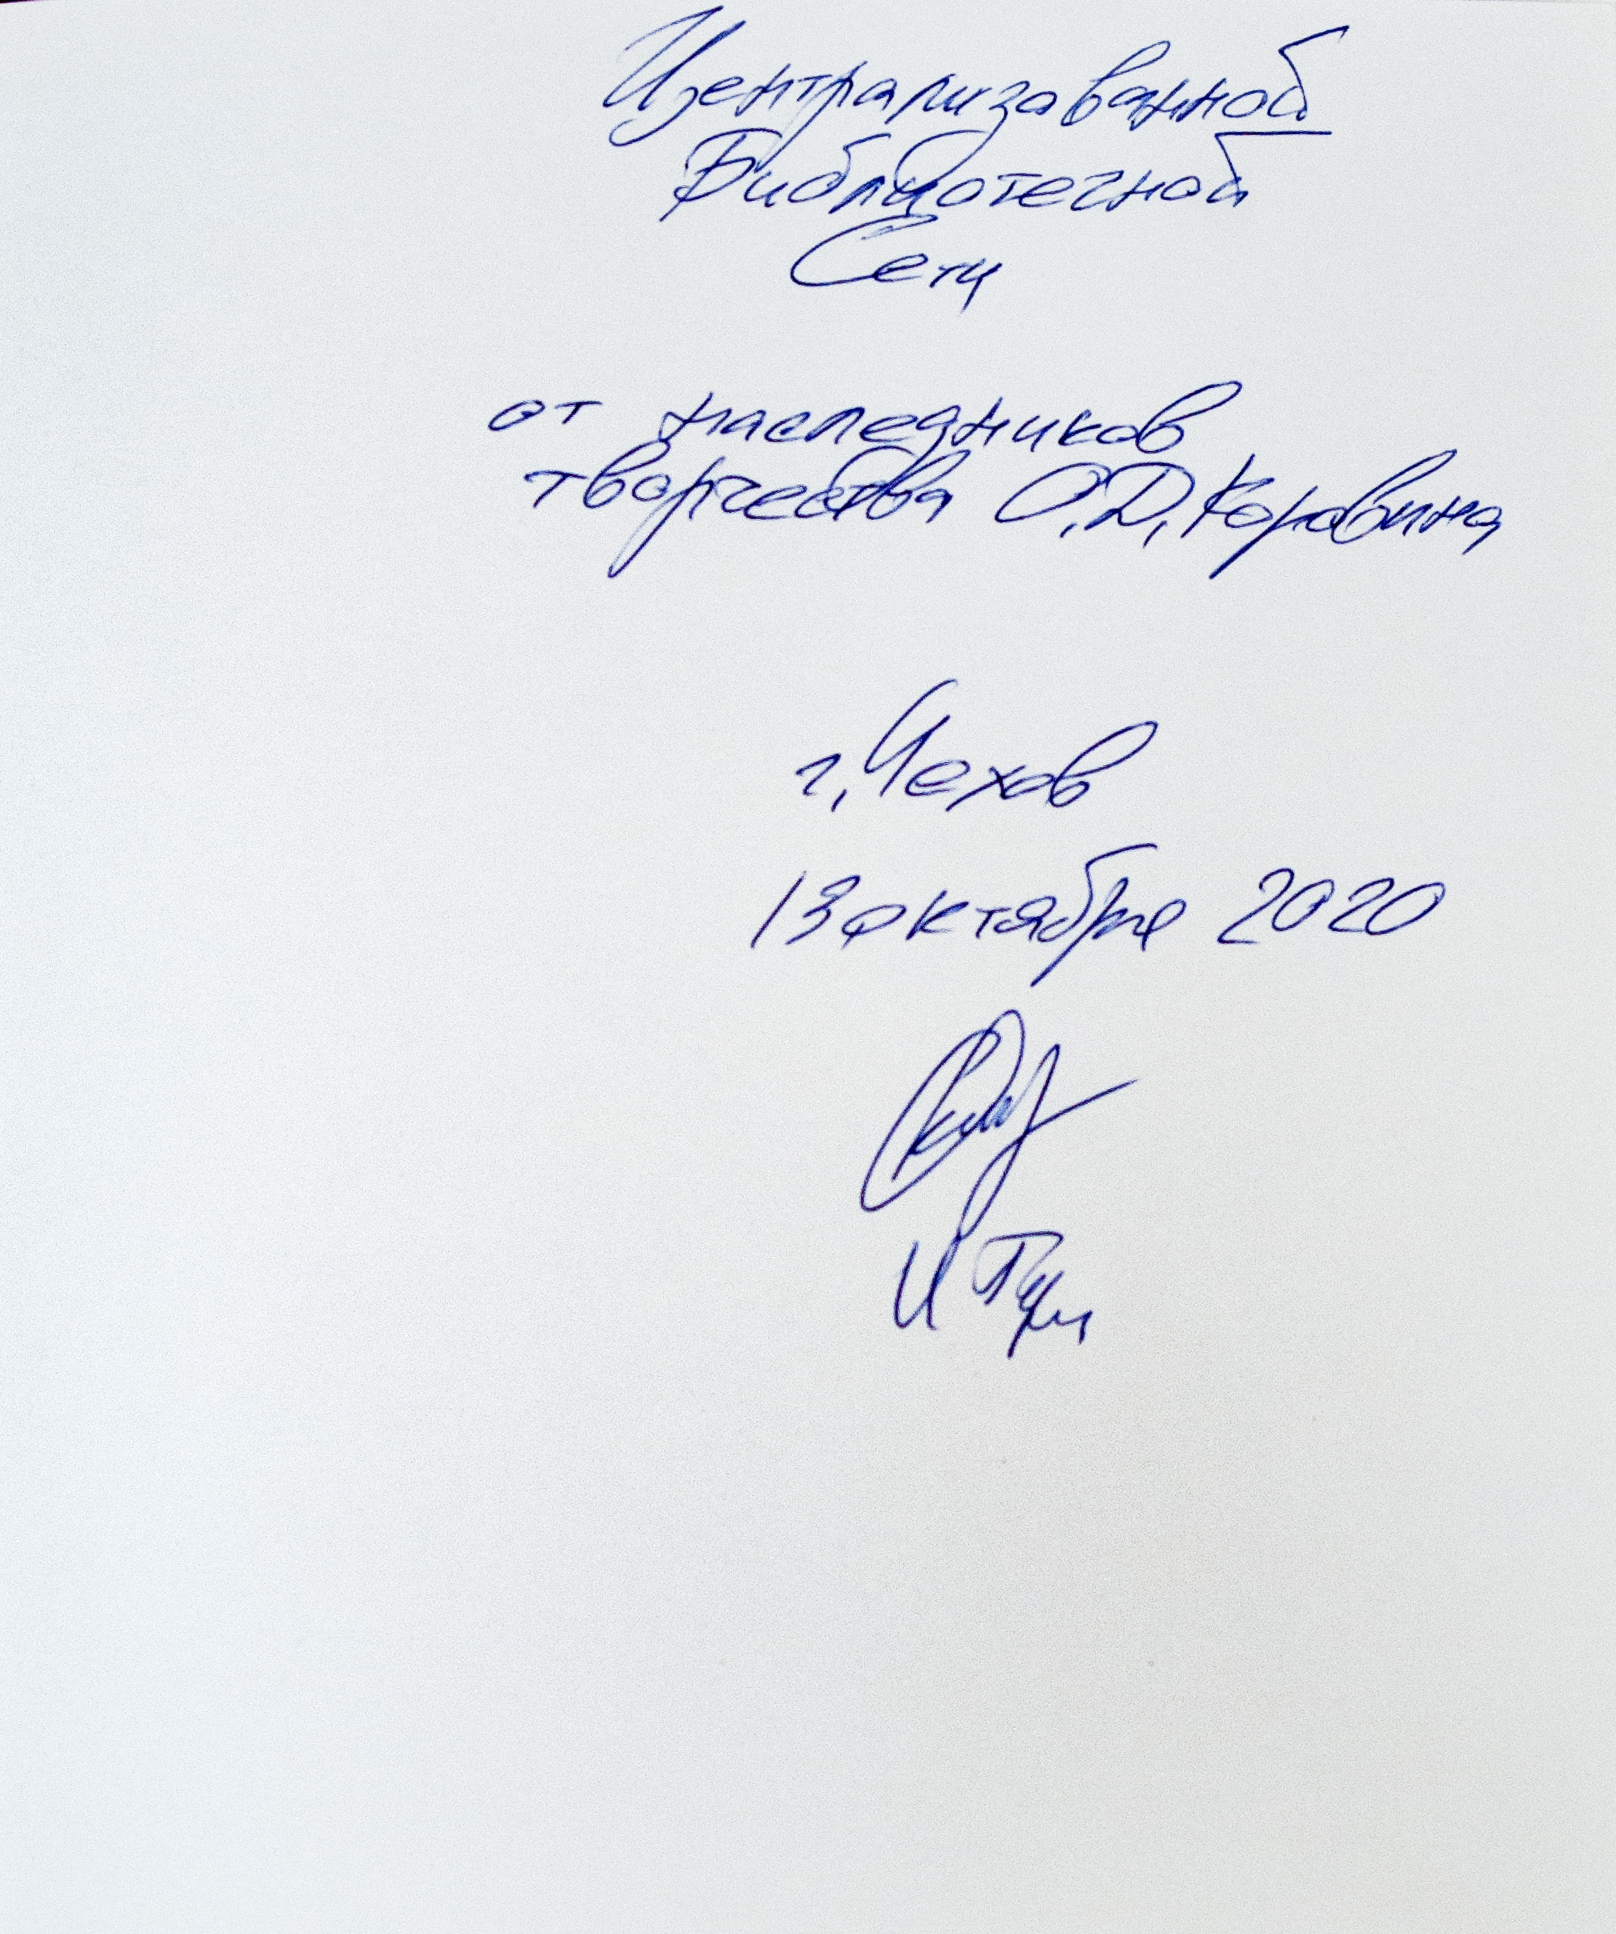 Централизованной
Библиотечной
Сети
от наследников
творчества О.Д. Коровина
г. Чехов
13 октября 2020